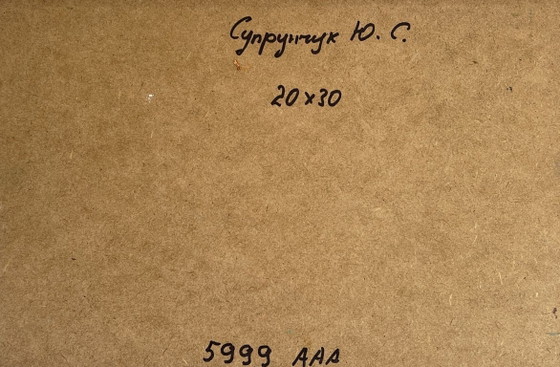 Супрунчук Ю. С.
20x30
5999 AAA